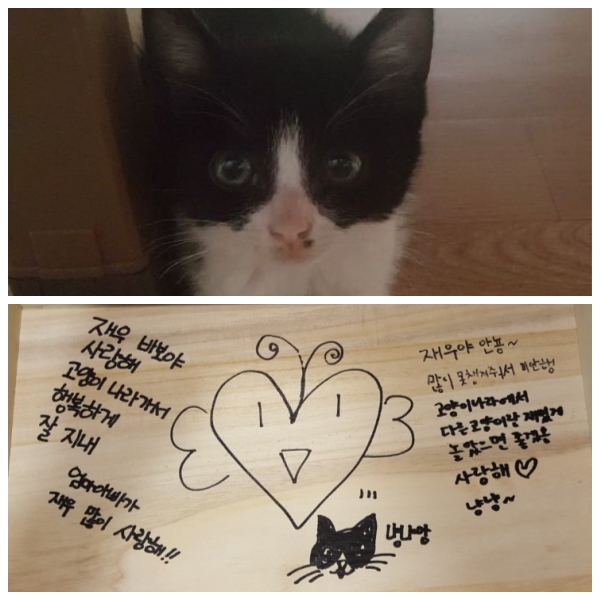 재우 바보야
사랑해
고양이 나라가서
행복하게
잘 지내
엄마아빠가
재우 많이 사랑해!!
재우야 안뇽~
많이 못챙겨줘서 미안행
고양이나라에서
다른고양이랑 재밌게
놀았으면 좋겠음
사랑해♡
냥냥~
냥냐앙